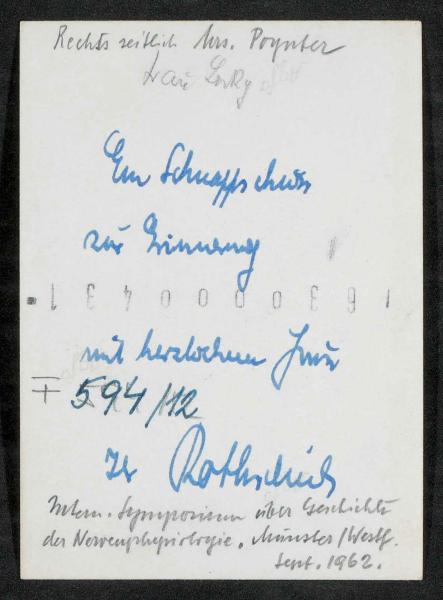 Rechts seitlich Mrs. Poynter
Frau
Ein Schnappschuss
zur Erinnerung
1630000431
mit herzlichem Gruss
F 594/12
Ihr Rothschuh
Intern. Symposium über Geschichte
der Nervenphysiologie. Münster/Westf.
Sept. 1962.